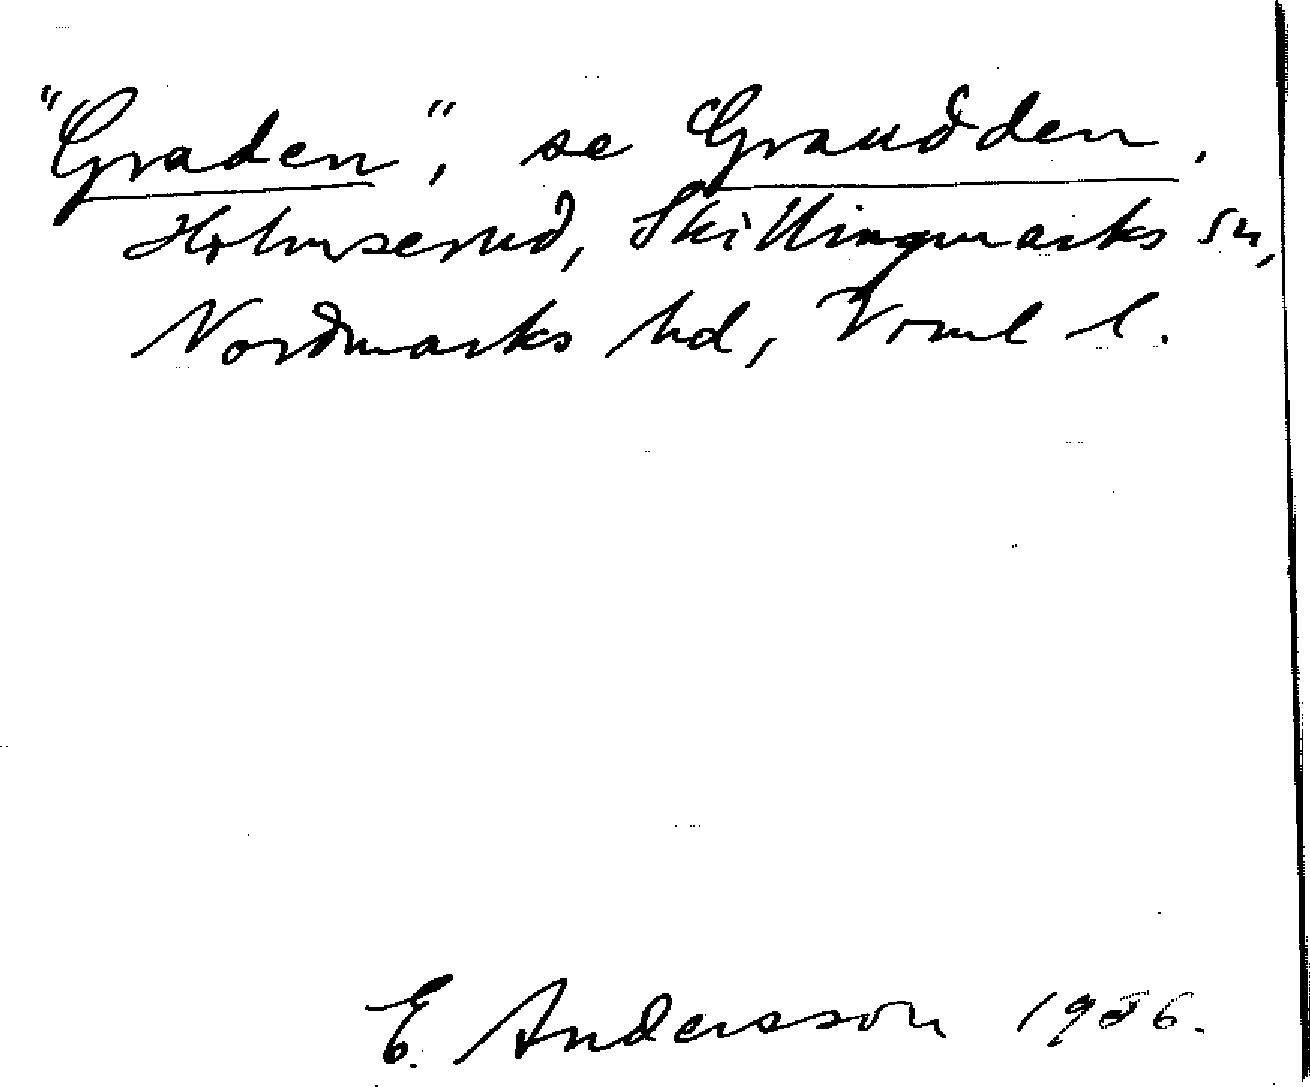 "Graden", se Graudden.
Holmserud, Skillingmarks sn,
Nordmarks hd, Vrml l.
E. Andersson 1936.